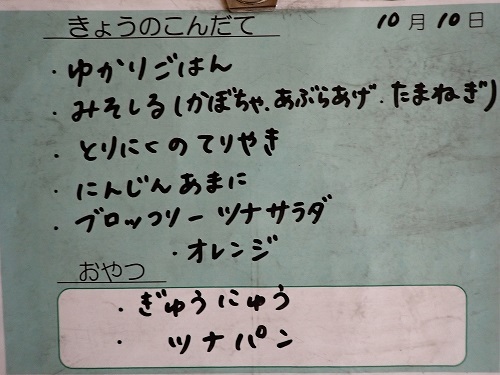 きょうのこんだて 10月10日
・ゆかりごはん
・みそしる(かぼちゃ.あぶらあげ.たまねぎ)
・とりにくのてりやき
・にんじんあまに
・ブロッコリーツナサラダ
・オレンジ
おやつ
・ぎゅうにゅう
・ツナパン